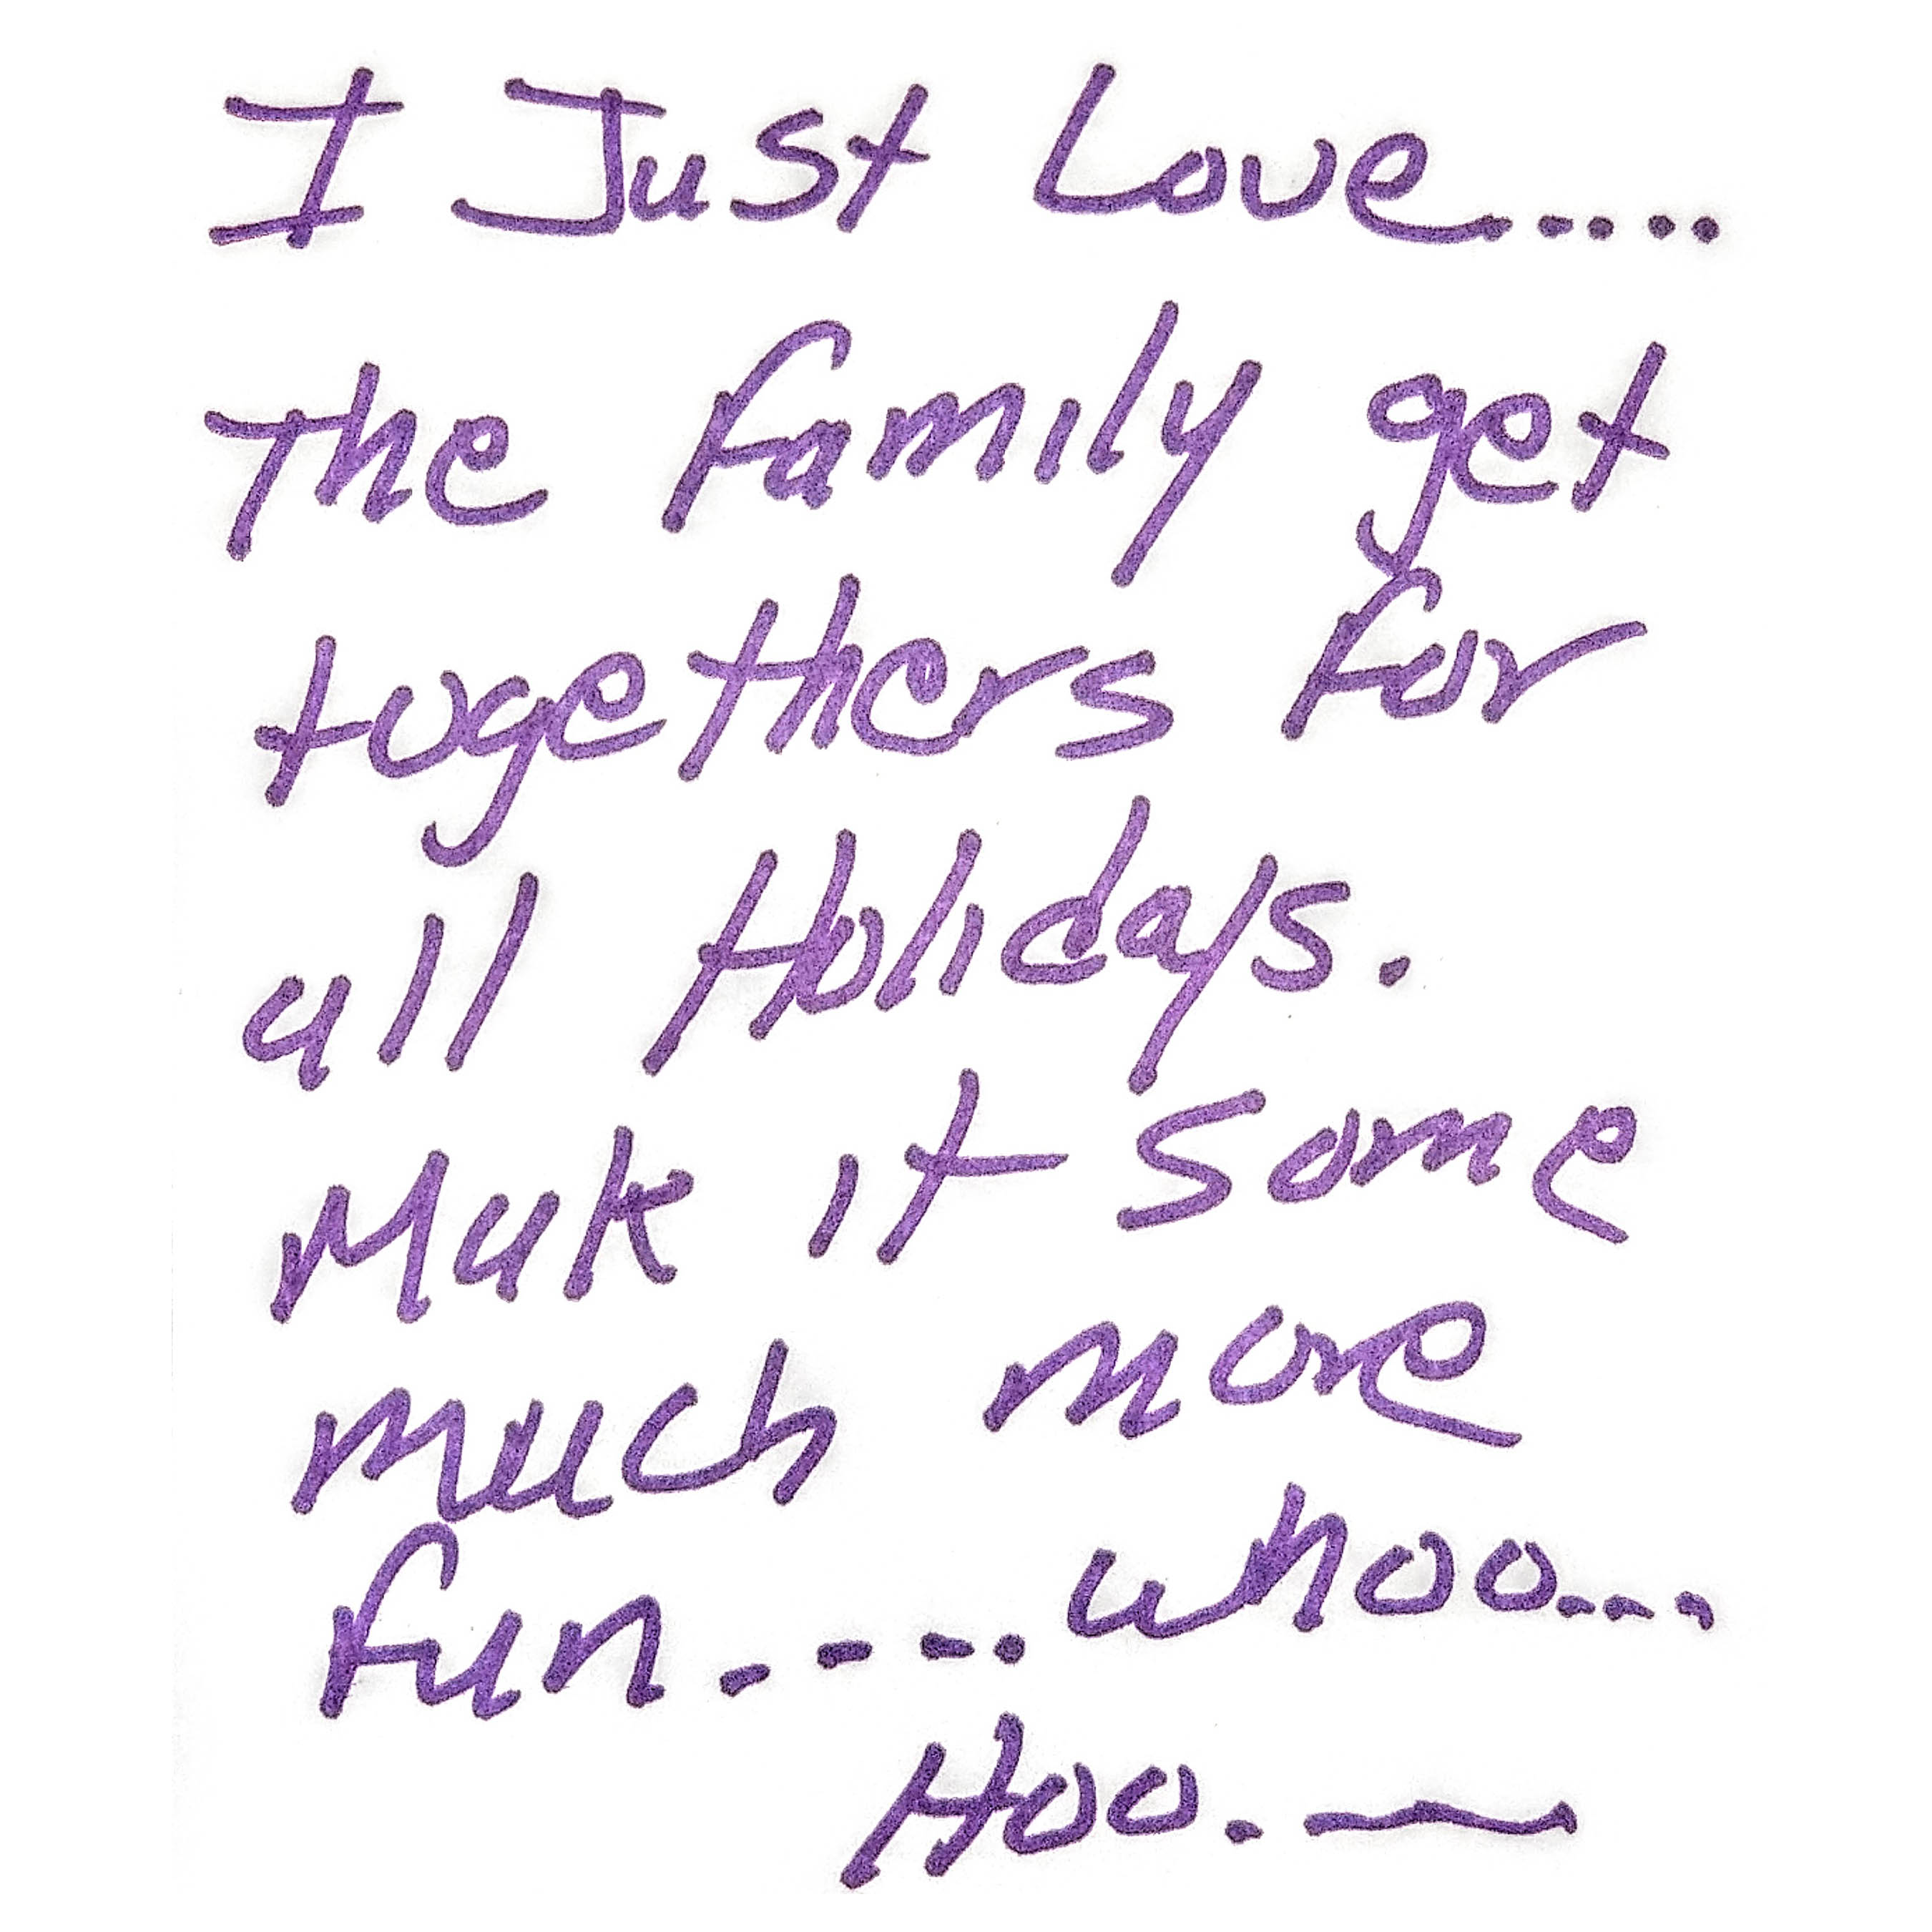 I Just Love.....
The family get
togethers for
all Holidays.
Mak it some
much more
fun....whoo...
Hoo.~